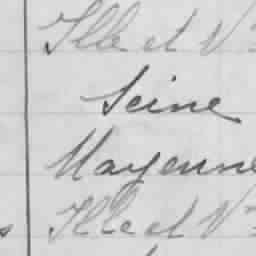 Ille et V
Seine
Mayenne
Ille et V